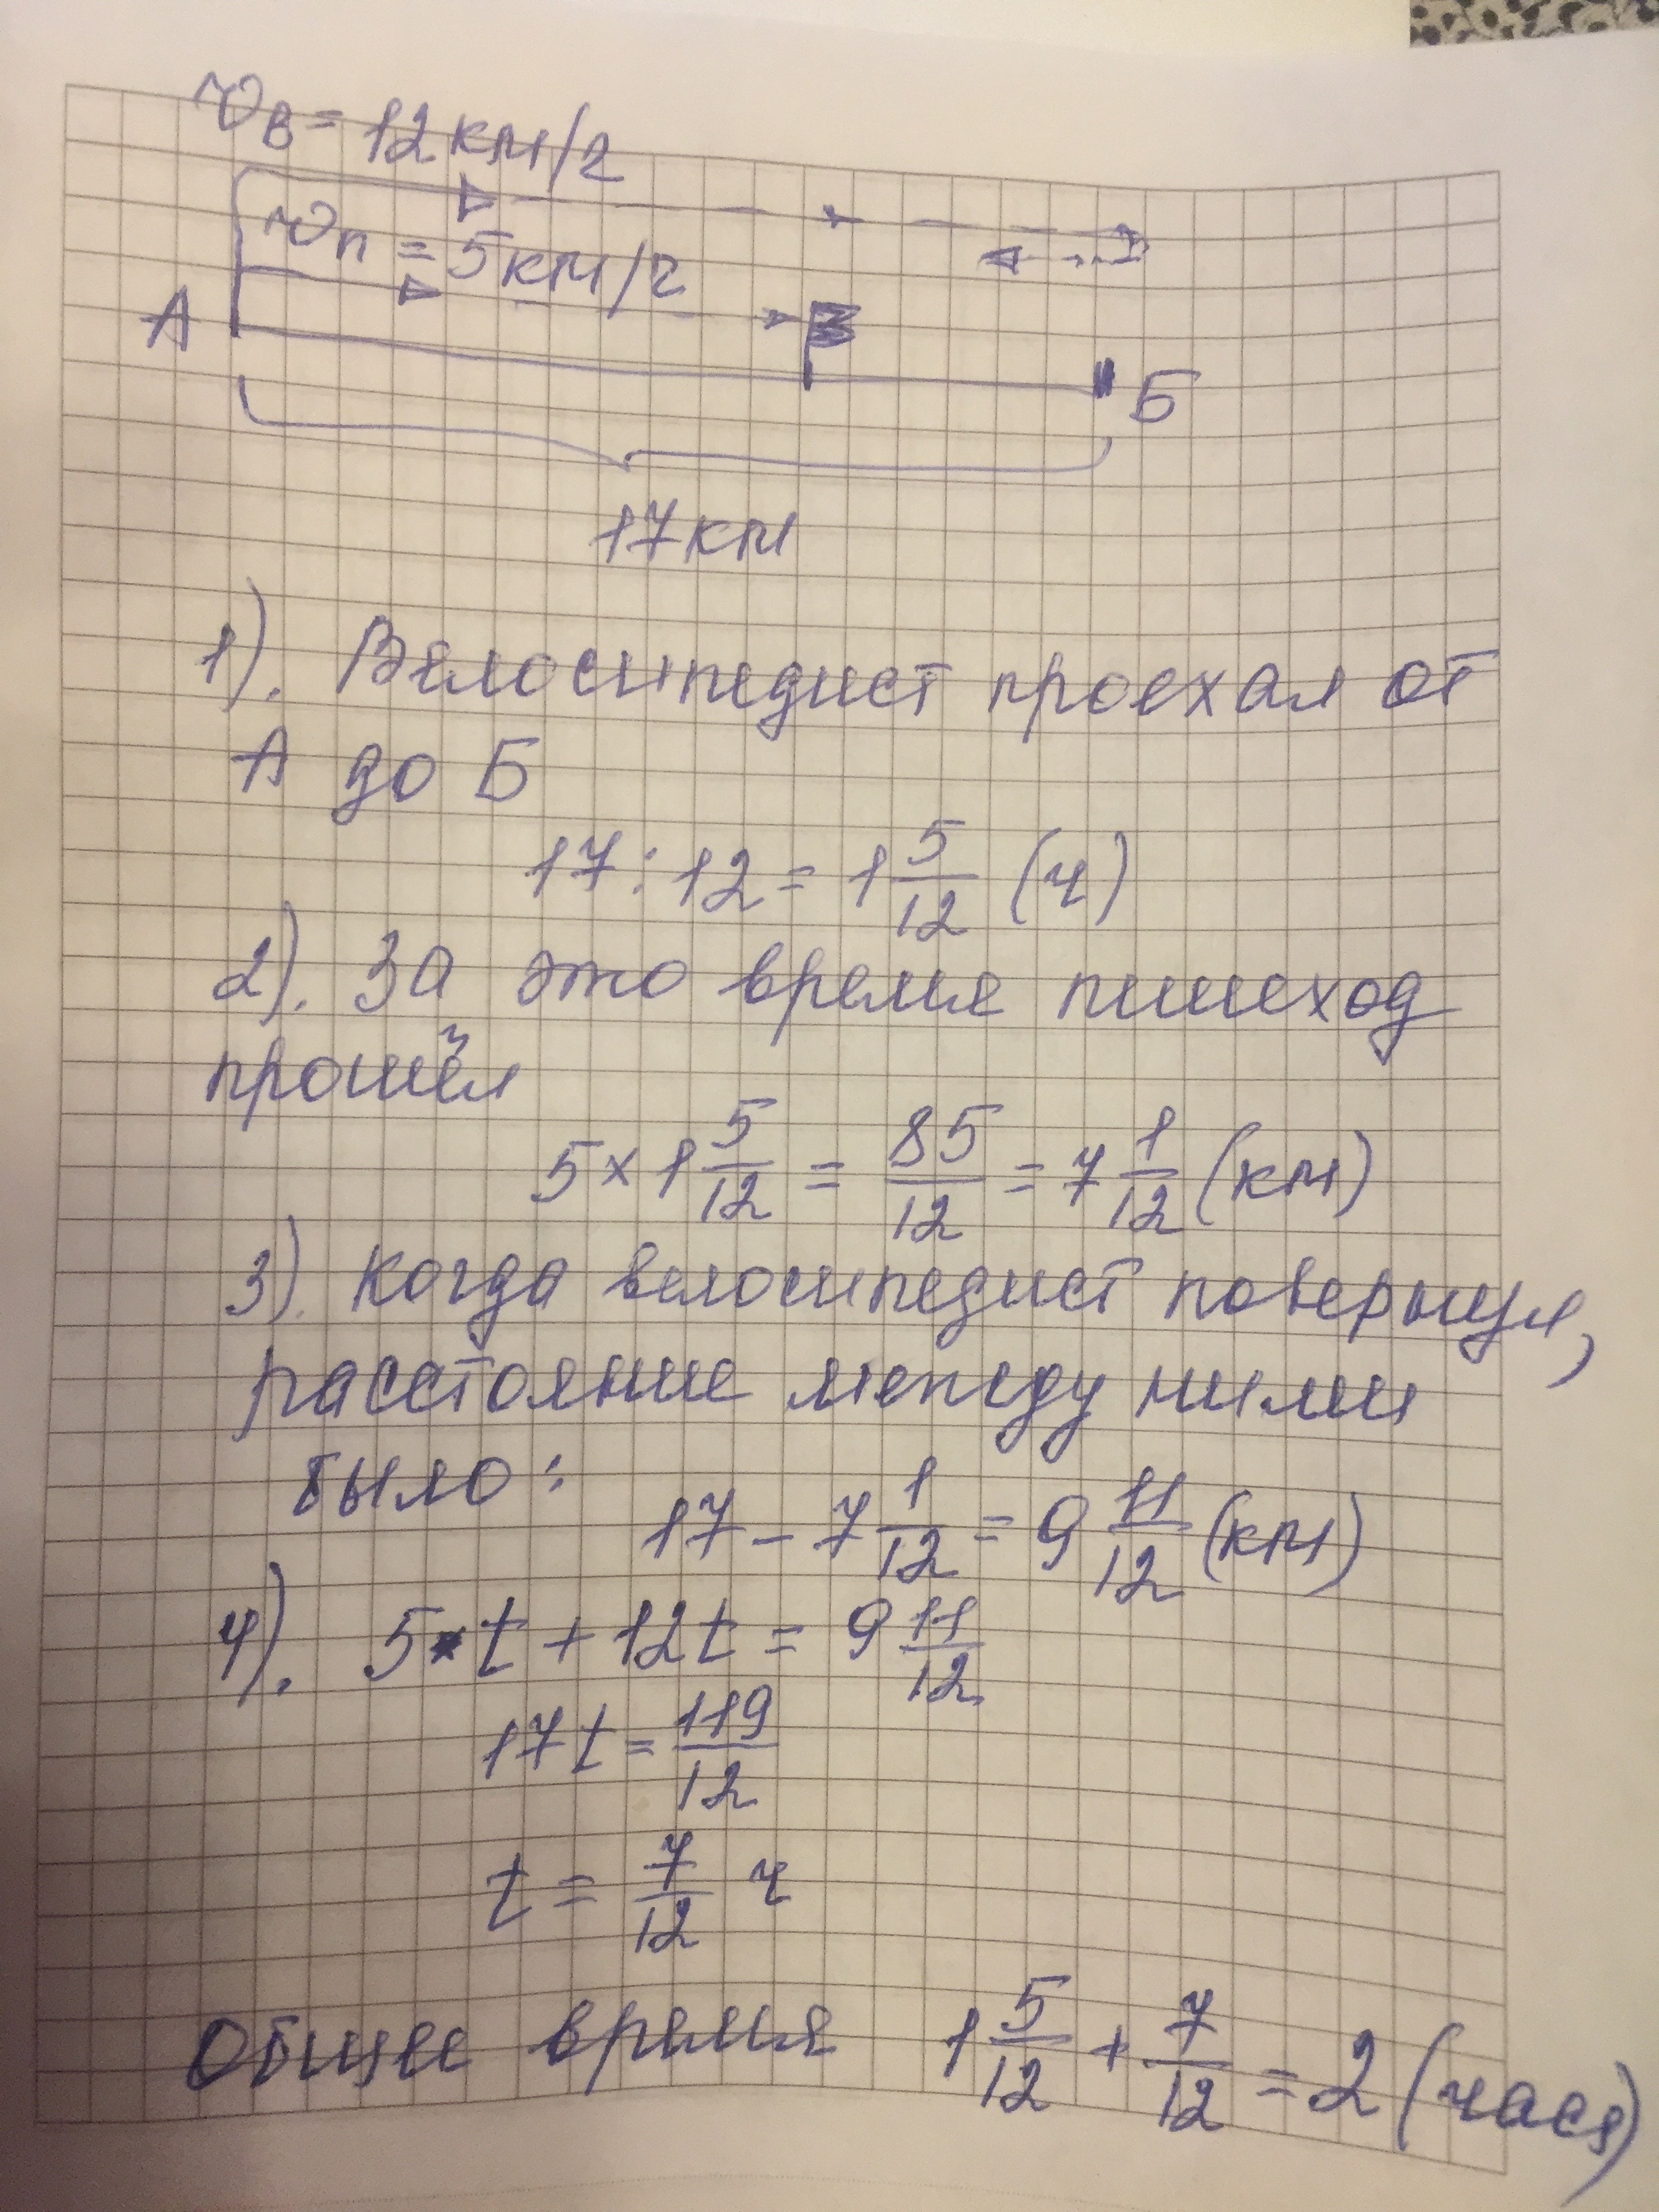 υв = 12 км/ч
υп = 5 км/ч
А
Б
17 км
1). Велосипедист проехал от
А до Б
17 : 12 = 1 5/12 (ч)
2). За это время пешеход
прошёл
5 × 1 5/12 = 85/12 = 7 1/12 (км)
3). Когда велосипедист повернул,
расстояние между ними
было :
17 - 7 1/12 = 9 11/12 (км)
4). 5 • t + 12t = 9 11/12
17t = 119/12
t = 7/12 ч
Общее время 1 5/12 + 7/12 = 2 (часа)